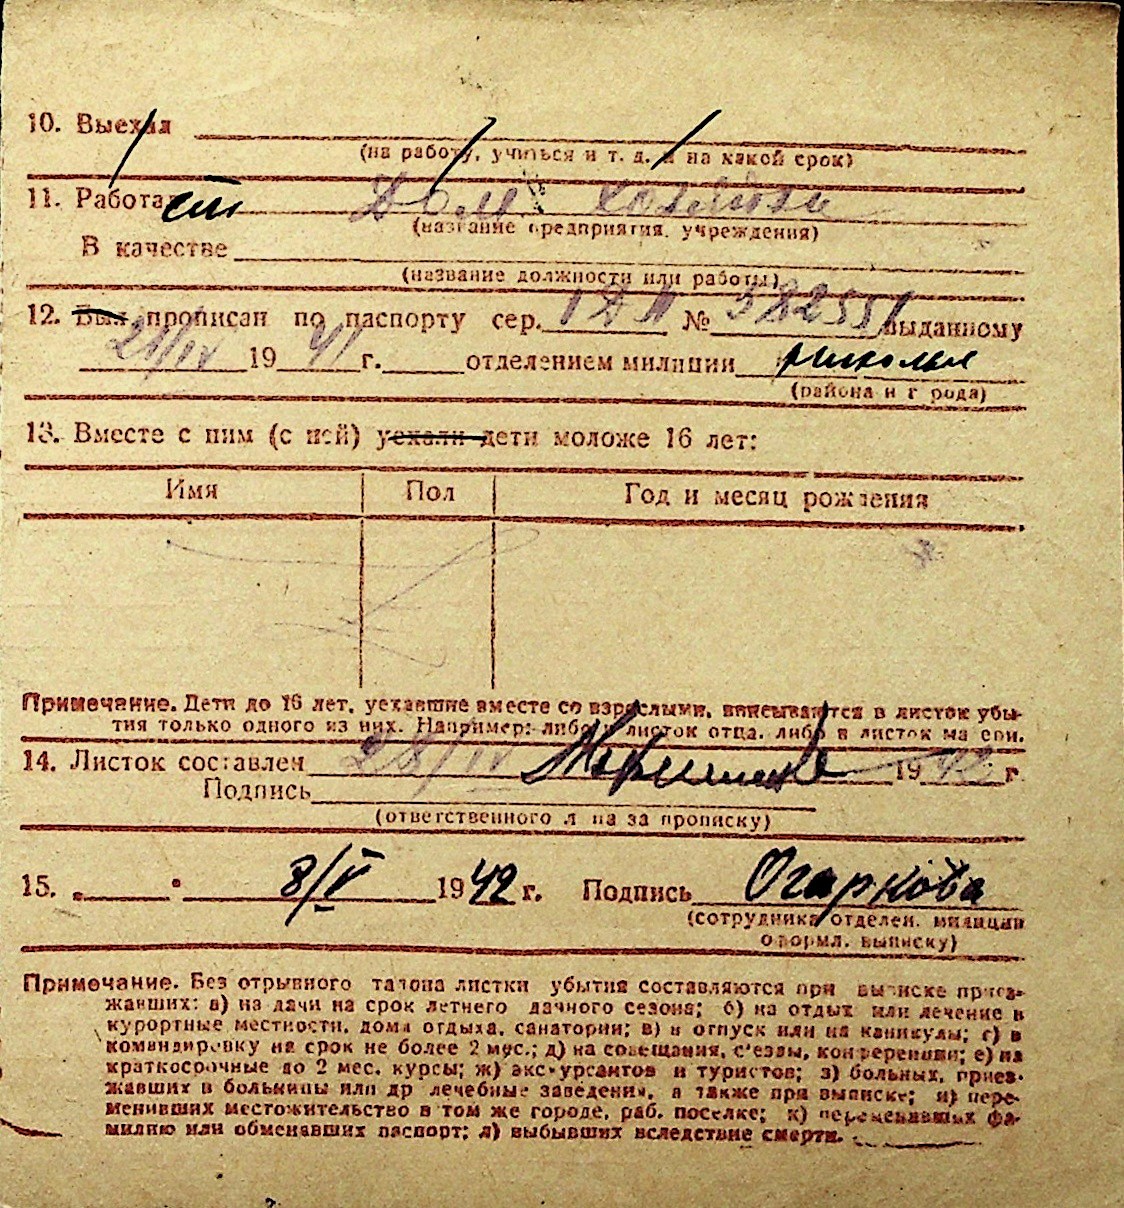 10. Выехал
(на работу, учиться и т. д. и на какой срок)
11. Работает Дом. хозяйка
(название предприятия, учреждения)
В качестве
(название должности или работы)
12. Был прописан по паспорту сер. № 382551 выданному
21/IV 19 41 г. отделением милиции
(района и города)
13. Вместе с ним (с ней) уехали дети моложе 16 лет:
Имя Пол Год и месяц рождения
Примечание. Дети до 16 лет, уехавшие вместе со взрослыми, вписываются в листок убы-
тия только одного из них. Например: либо в листок отца, либо в листок матери.
14. Листок составлен 28/IV 19 42 г.
Подпись
(ответственного лица за прописку)
15. 8/V 1942 г. Подпись Огаркова
(сотрудника отделен. милиции
оформл. выписку)
Примечание. Без отрывного талона листки убытия составляются при выписке приез-
жавших: а) на дачи на срок летнего дачного сезона; б) на отдых или лечение в
курортные местности, дома отдыха, санатории; в) в отпуск или на каникулы; г) в
командировку на срок не более 2 мес.; д) на совещания, с'езды, конференции; е) на
краткосрочные до 2 мес. курсы; ж) экскурсантов и туристов; з) больных, приез-
жавших в больницы или др лечебные заведения, а также при выписке; и) пере-
менивших местожительство в том же городе, раб. поселке; к) переменивших фа-
милию или обменявших паспорт; л) выбывших вследствие смерти.